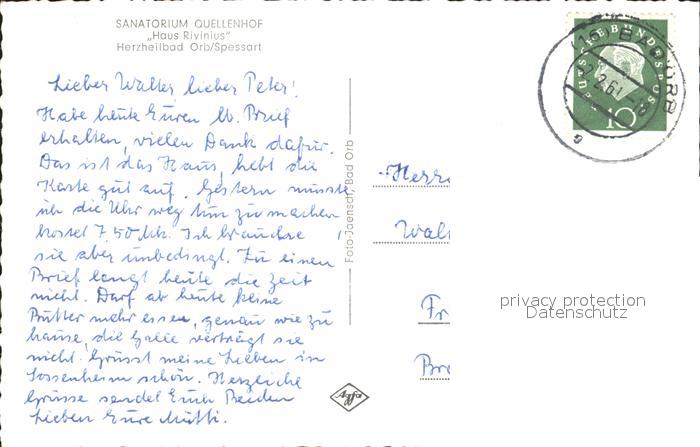 SANATORIUM QUELLENHOF
„Haus Rivinius"
Herzheilbad Orb/Spessart
Lieber Walter, lieber Peter!
Habe heute Euren lb. Brief
erhalten, vielen Dank dafür.
Das ist das Haus, hebt die
Karte gut auf. Gestern musste
ich die Uhr weg tun zu machen
kostet 7.50 Mk. Ich brauche
sie aber unbedingt. Zu einen
Brief langt heute die Zeit
nicht. Darf ab heute keine
Butter mehr essen, genau wie zu
hause, die Galle verträgt sie
nicht. Grüsst meine Lieben in
Sossenheim schön. Herzliche
Grüsse sendet Euch Beiden
Lieben Eure Mutti.
Foto-Joensch, Bad Orb
Agfa
DEUTSCHE BUNDESPOST
10
(16) BAD ORB
Herr
Walt
Fr
Br
privacy protection
Datenschutz